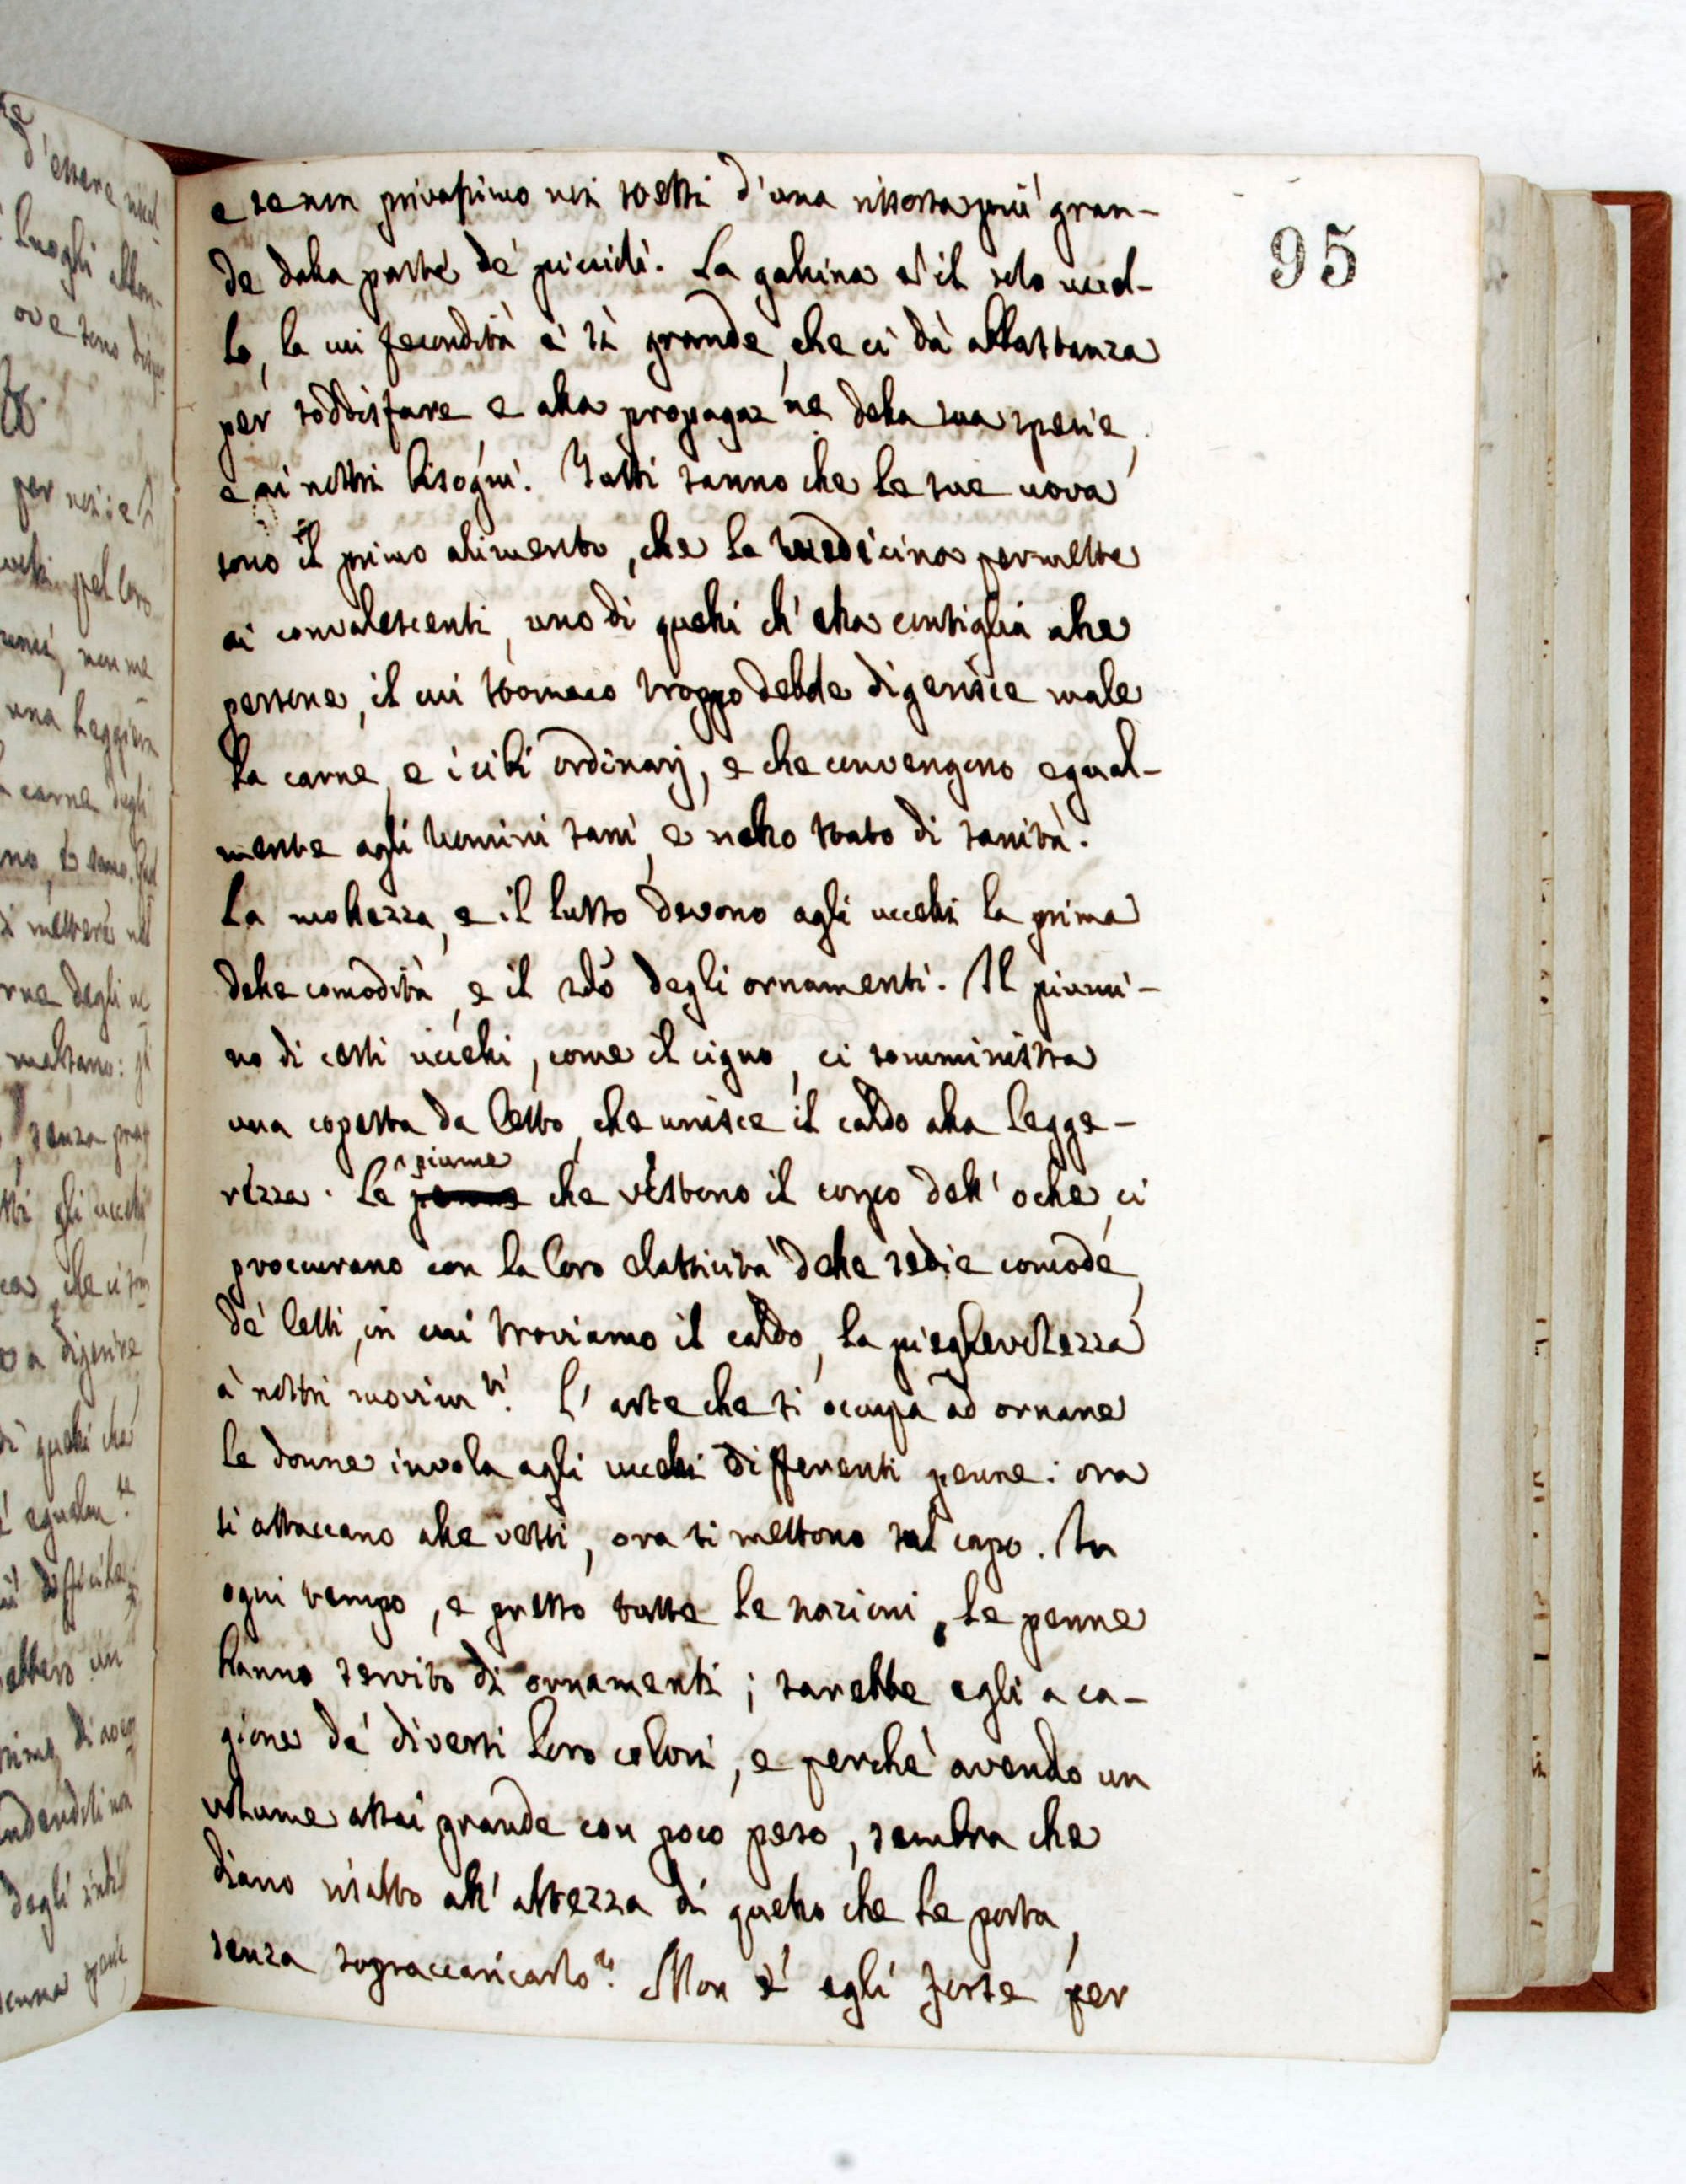 95
e se non privassimo noi stessi d'una risorsa più gran-
de dalla parte de' piccioli. La gallina è il solo uccel-
lo, la cui fecondità è sì grande, che ci dà abbastanza
per soddisfare e alla propagaz.ne della sua specie,
e ai nostri bisogni. Tutti sanno che le sue uova
sono il primo alimento, che la medicina permette
ai convalescenti, uno di quelli ch'ella consiglia alle
persone, il cui stomaco troppo debole digerisce male
la carne, e i cibi ordinarj, e che convengono egual-
mente agli uomini sani, e nello stato di sanità.
La mollezza, e il lusso devono agli uccelli la prima
delle comodità, e il 2do degli ornamenti. Il piumi-
no di certi uccelli, come il cigno, ci somministra
una coperta da letto, che unisce il caldo alla legge-
rezza. Le piume che vestono il corpo dell'oche, ci
proccurano con la loro elasticità delle sedie comode,
de' letti, in cui troviamo il caldo, la pieghevolezza
a' nostri movim.ti. L'arte che si occupa ad ornare
le donne invola agli uccelli differenti penne: ora
si attaccano alle vesti, ora si mettono sul capo. In
ogni tempo, e presso tutte le nazioni, le penne
hanno servito di ornamenti; sarebbe egli a ca-
gione de' diversi loro colori, e perchè avendo un
volume assai grande con poco peso, sembra che
diano risalto all'altezza di quello che le porta,
senza sopraccaricarlo? Non è egli forse per